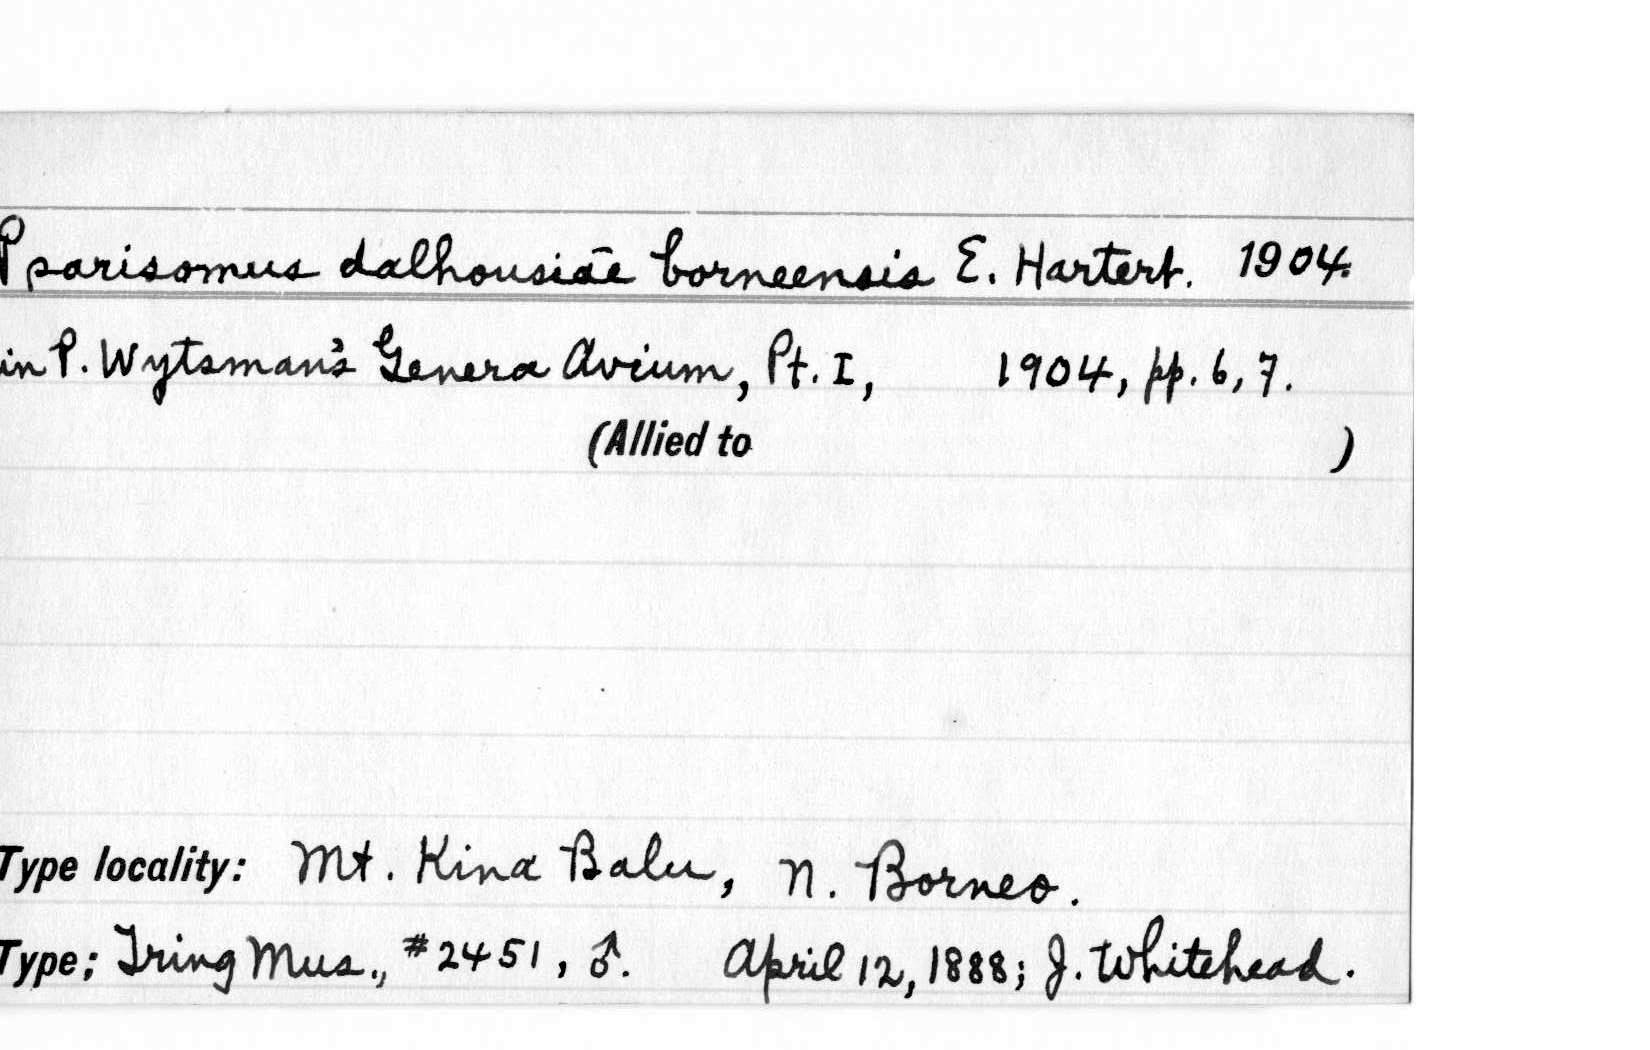 Pparisomus dalhousiae borneensis E. Hartert. 1904.
in P. Wytsman's Genera Avium, Pt. I, 1904, pp. 6, 7.
(Allied to )
Type locality: Mt. Kina Balu, N. Borneo.
Type; Tring Mus., #2451, ♂. April 12, 1888; J. Whitehead.